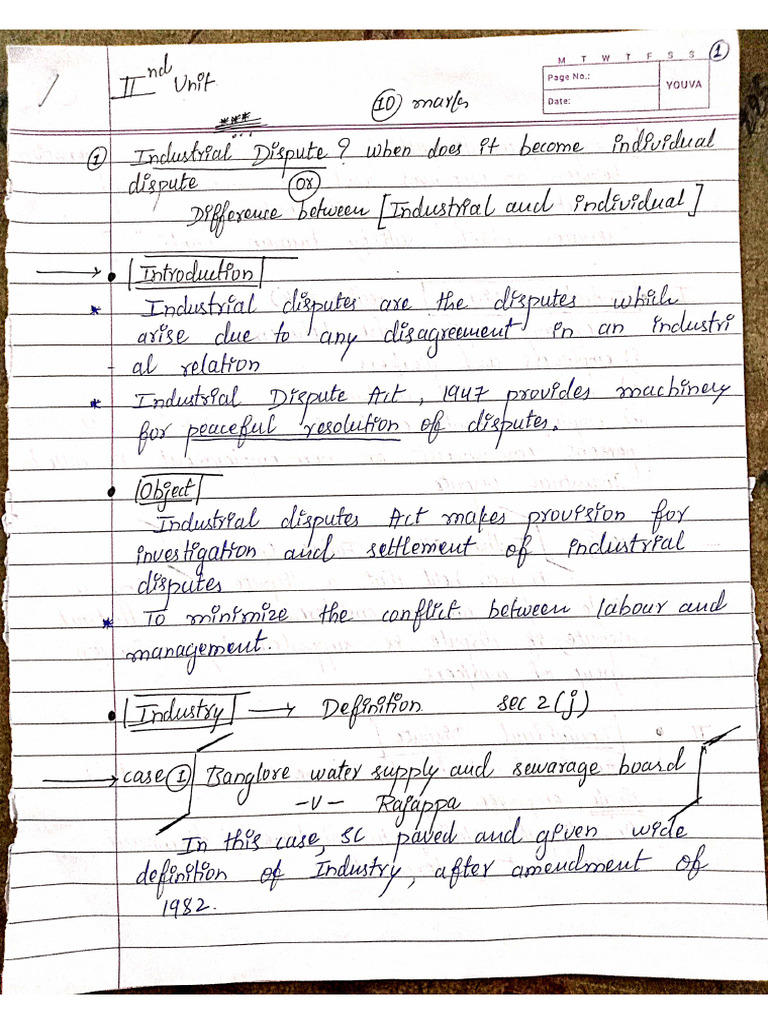 M T W T F S S
①
Page No.:
Date:
YOUVA
IInd Unit
⑩ marks
***
① Industrial Dispute? When does it become individual
dispute (OR)
Difference between [Industrial and individual]
→ • Introduction
* Industrial disputes are the disputes which
arise due to any disagreement in an industri
- al relation
* Industrial Dispute Act, 1947 provides machinery
for peaceful resolution of disputes.
• Object
Industrial disputes Act makes provision for
investigation and settlement of industrial
disputes
* To minimize the conflict between labour and
management.
• Industry → Definition sec 2(j)
→ case ① Banglore water supply and sewarage board
-v- Rajappa
In this case, SC paved and given wide
definition of Industry, after amendment of
1982.